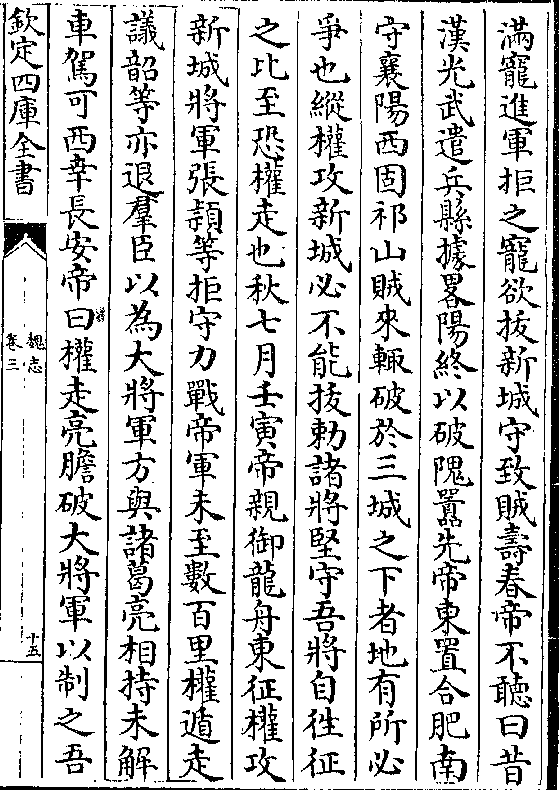 滿寵進軍拒之寵欲拔新城守致賊壽春帝不聽曰昔
漢光武遣兵縣據畧陽終以破隗囂先帝東置合肥南
守襄陽西固祁山賊來輙破於三城之下者地有所必
爭也縱權攻新城必不能拔勅諸將堅守吾將自徃征
之比至恐權走也秋七月壬寅帝親御龍舟東征權攻
新城將軍張頴等拒守力戰帝軍未至數百里權遁走
議韶等亦退羣臣以為大將軍方與諸葛亮相持未解
車駕可西幸長安帝曰權走亮膽破大將軍以制之吾
欽定四庫全書
魏志
卷三
十五